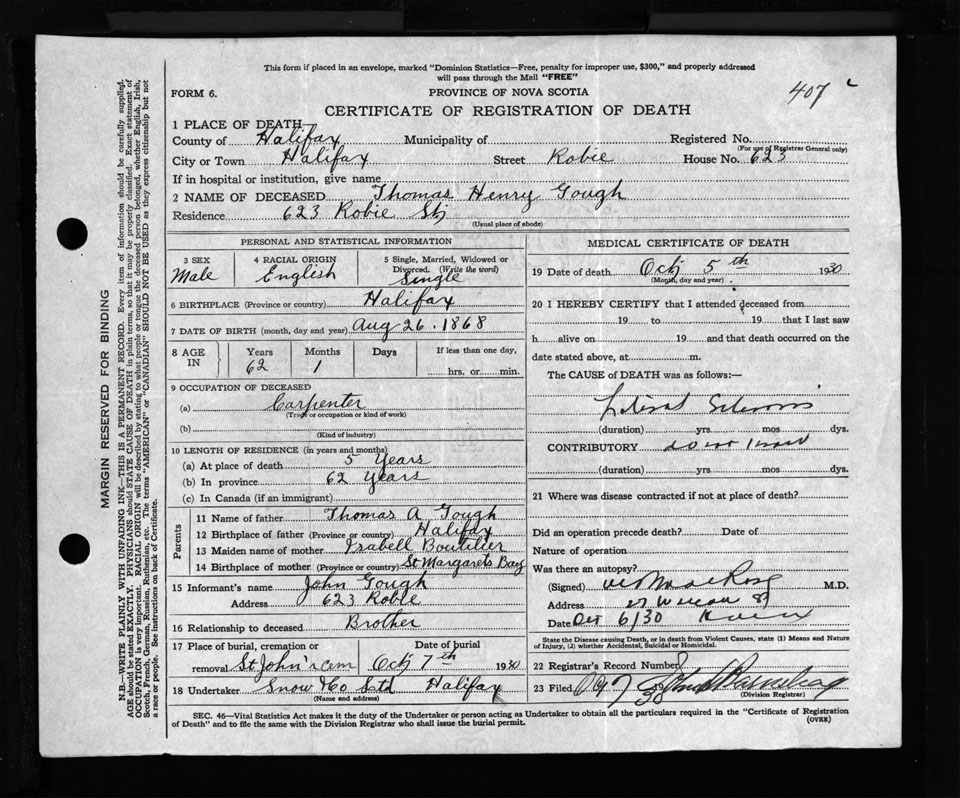 This form if placed in an envelope, marked "Dominion Statistics—Free, penalty for improper use, $300," and properly addressed
will pass through the Mail "FREE"
407
FORM 6.
PROVINCE OF NOVA SCOTIA
CERTIFICATE OF REGISTRATION OF DEATH
1 PLACE OF DEATH
County of Halifax Municipality of Registered No.
(For use of Registrar General only)
City or Town Halifax Street Robie House No. 623
If in hospital or institution, give name
2 NAME OF DECEASED Thomas Henry Gough
Residence 623 Robie St
(Usual place of abode)
PERSONAL AND STATISTICAL INFORMATION
3 SEX 4 RACIAL ORIGIN 5 Single, Married, Widowed or
Divorced. (Write the word)
Male English Single
6 BIRTHPLACE (Province or country) Halifax
7 DATE OF BIRTH (month, day and year) Aug 26. 1868
8 AGE IN Years Months Days If less than one day,
62 1 hrs. or min.
9 OCCUPATION OF DECEASED
(a) Carpenter
(Trade or occupation or kind of work)
(b)
(Kind of industry)
10 LENGTH OF RESIDENCE (in years and months)
(a) At place of death 5 Years
(b) In province 62 Years
(c) In Canada (if an immigrant)
Parents
11 Name of father Thomas A Gough
12 Birthplace of father (Province or country) Halifax
13 Maiden name of mother Izabell Boutilier
14 Birthplace of mother (Province or country) St Margarets Bay
15 Informant's name John Gough
Address 623 Robie
16 Relationship to deceased Brother
17 Place of burial, cremation or Date of burial
removal St John's Cem Oct 7th 1930
18 Undertaker Snow & Co Ltd Halifax
(Name and address)
MEDICAL CERTIFICATE OF DEATH
19 Date of death Oct 5th 1930
(Month, day and year)
20 I HEREBY CERTIFY that I attended deceased from
19 to 19 that I last saw
h alive on 19 and that death occurred on the
date stated above, at m.
The CAUSE of DEATH was as follows:—
(duration) yrs. mos. dys.
CONTRIBUTORY
(duration) yrs. mos dys.
21 Where was disease contracted if not at place of death?
Did an operation precede death? Date of
Nature of operation
Was there an autopsy?
(Signed) M.D.
Address
Date Oct 6/30
State the Disease causing Death, or in death from Violent Causes, state (1) Means and Nature
of Injury, (2) whether Accidental, Suicidal or Homicidal.
22 Registrar's Record Number
23 Filed
(Division Registrar)
SEC. 46—Vital Statistics Act makes it the duty of the Undertaker or person acting as Undertaker to obtain all the particulars required in the "Certificate of Registration
of Death" and to file the same with the Division Registrar who shall issue the burial permit. (OVER)
MARGIN RESERVED FOR BINDING
N.B.—WRITE PLAINLY WITH UNFADING INK—THIS IS A PERMANENT RECORD. Every item of information should be carefully supplied.
AGE should be stated EXACTLY. PHYSICIANS should STATE CAUSE OF DEATH in plain terms, so that it may be properly classified. Exact statement of
OCCUPATION is very important. RACIAL ORIGIN will be described by stating to what people or tongue the deceased person belonged, whether English, Irish,
Scotch, French, German, Russian, Ruthenian, etc. The terms "AMERICAN" or "CANADIAN" SHOULD NOT BE USED as they express citizenship but not
a race or people. See instructions on back of Certificate.